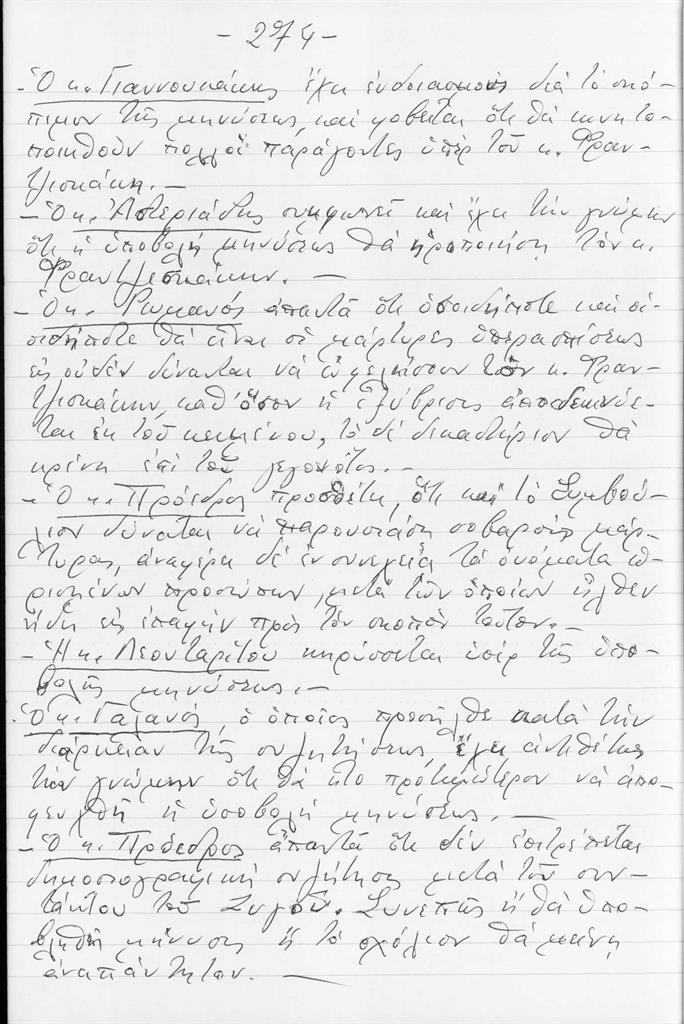 - 274 -
- Ὁ κ. Γιαννουκάκης ἔχει ἐνδοιασμούς διά τό σκό-
πιμον τῆς μηνύσεως, καί φοβεῖται ὅτι θά κινητο-
ποιηθοῦν πολλοί παράγοντες ὑπέρ τοῦ κ. Φραν-
τζισκάκη. -
- Ὁ κ. Ἀστεριάδης συμφωνεῖ καί ἔχει τήν γνώμην
ὅτι ἡ ὑποβολή μηνύσεως θά ἡροποιήσῃ τόν κ.
Φραντζισκάκην. -
- Ὁ κ. Ρωμανός ἀπαντᾶ ὅτι ὁσοιδήποτε καί οἱ-
οιδήποτε θά εἶναι οἱ μάρτυρες ὑπερασπίσεως
εἰς οὐδέν δύνανται νά ὠφελήσουν τόν κ. Φραν-
τζισκάκην, καθ' ὅσον ἡ ἐξύβρισις ἀποδεικνύε-
ται ἐκ τοῦ κειμένου, τό δέ δικαστήριον θά
κρίνῃ ἐπί τοῦ γεγονότος. -
- Ὁ κ. Πρόεδρος προσθέτει, ὅτι καί τό Συμβού-
λιον δύναται νά παρουσιάσῃ σοβαρούς μάρ-
τυρας, ἀναφέρει δέ ἐν συνεχείᾳ τά ὀνόματα ὡ-
ρισμένων προσώπων, μετά τῶν ὁποίων ἦλθεν
ἤδη εἰς ἐπαφήν πρός τόν σκοπόν τοῦτον. -
- Ἡ κ. Λεονταρίτου κηρύσσεται ὑπέρ τῆς ὑπο-
βολῆς μηνύσεως. -
- Ὁ κ. Γαλανός, ὁ ὁποῖος προσῆλθε κατά τήν
διάρκειαν τῆς συζητήσεως, ἔχει ἀντιθέτως
τήν γνώμην ὅτι θά ἦτο προτιμώτερον νά ἀπο-
φευχθῇ ἡ ὑποβολή μηνύσεως. -
- Ὁ κ. Πρόεδρος ἀπαντᾶ ὅτι δέν ἐπιτρέπεται
δημοσιογραφική συζήτησις μετά τοῦ συν-
τάκτου τοῦ Ζυγοῦ. Συνεπῶς ἤ θά ὑπο-
βληθῇ μήνυσις ἤ τό σχόλιον θά μείνῃ
ἀναπάντητον. -